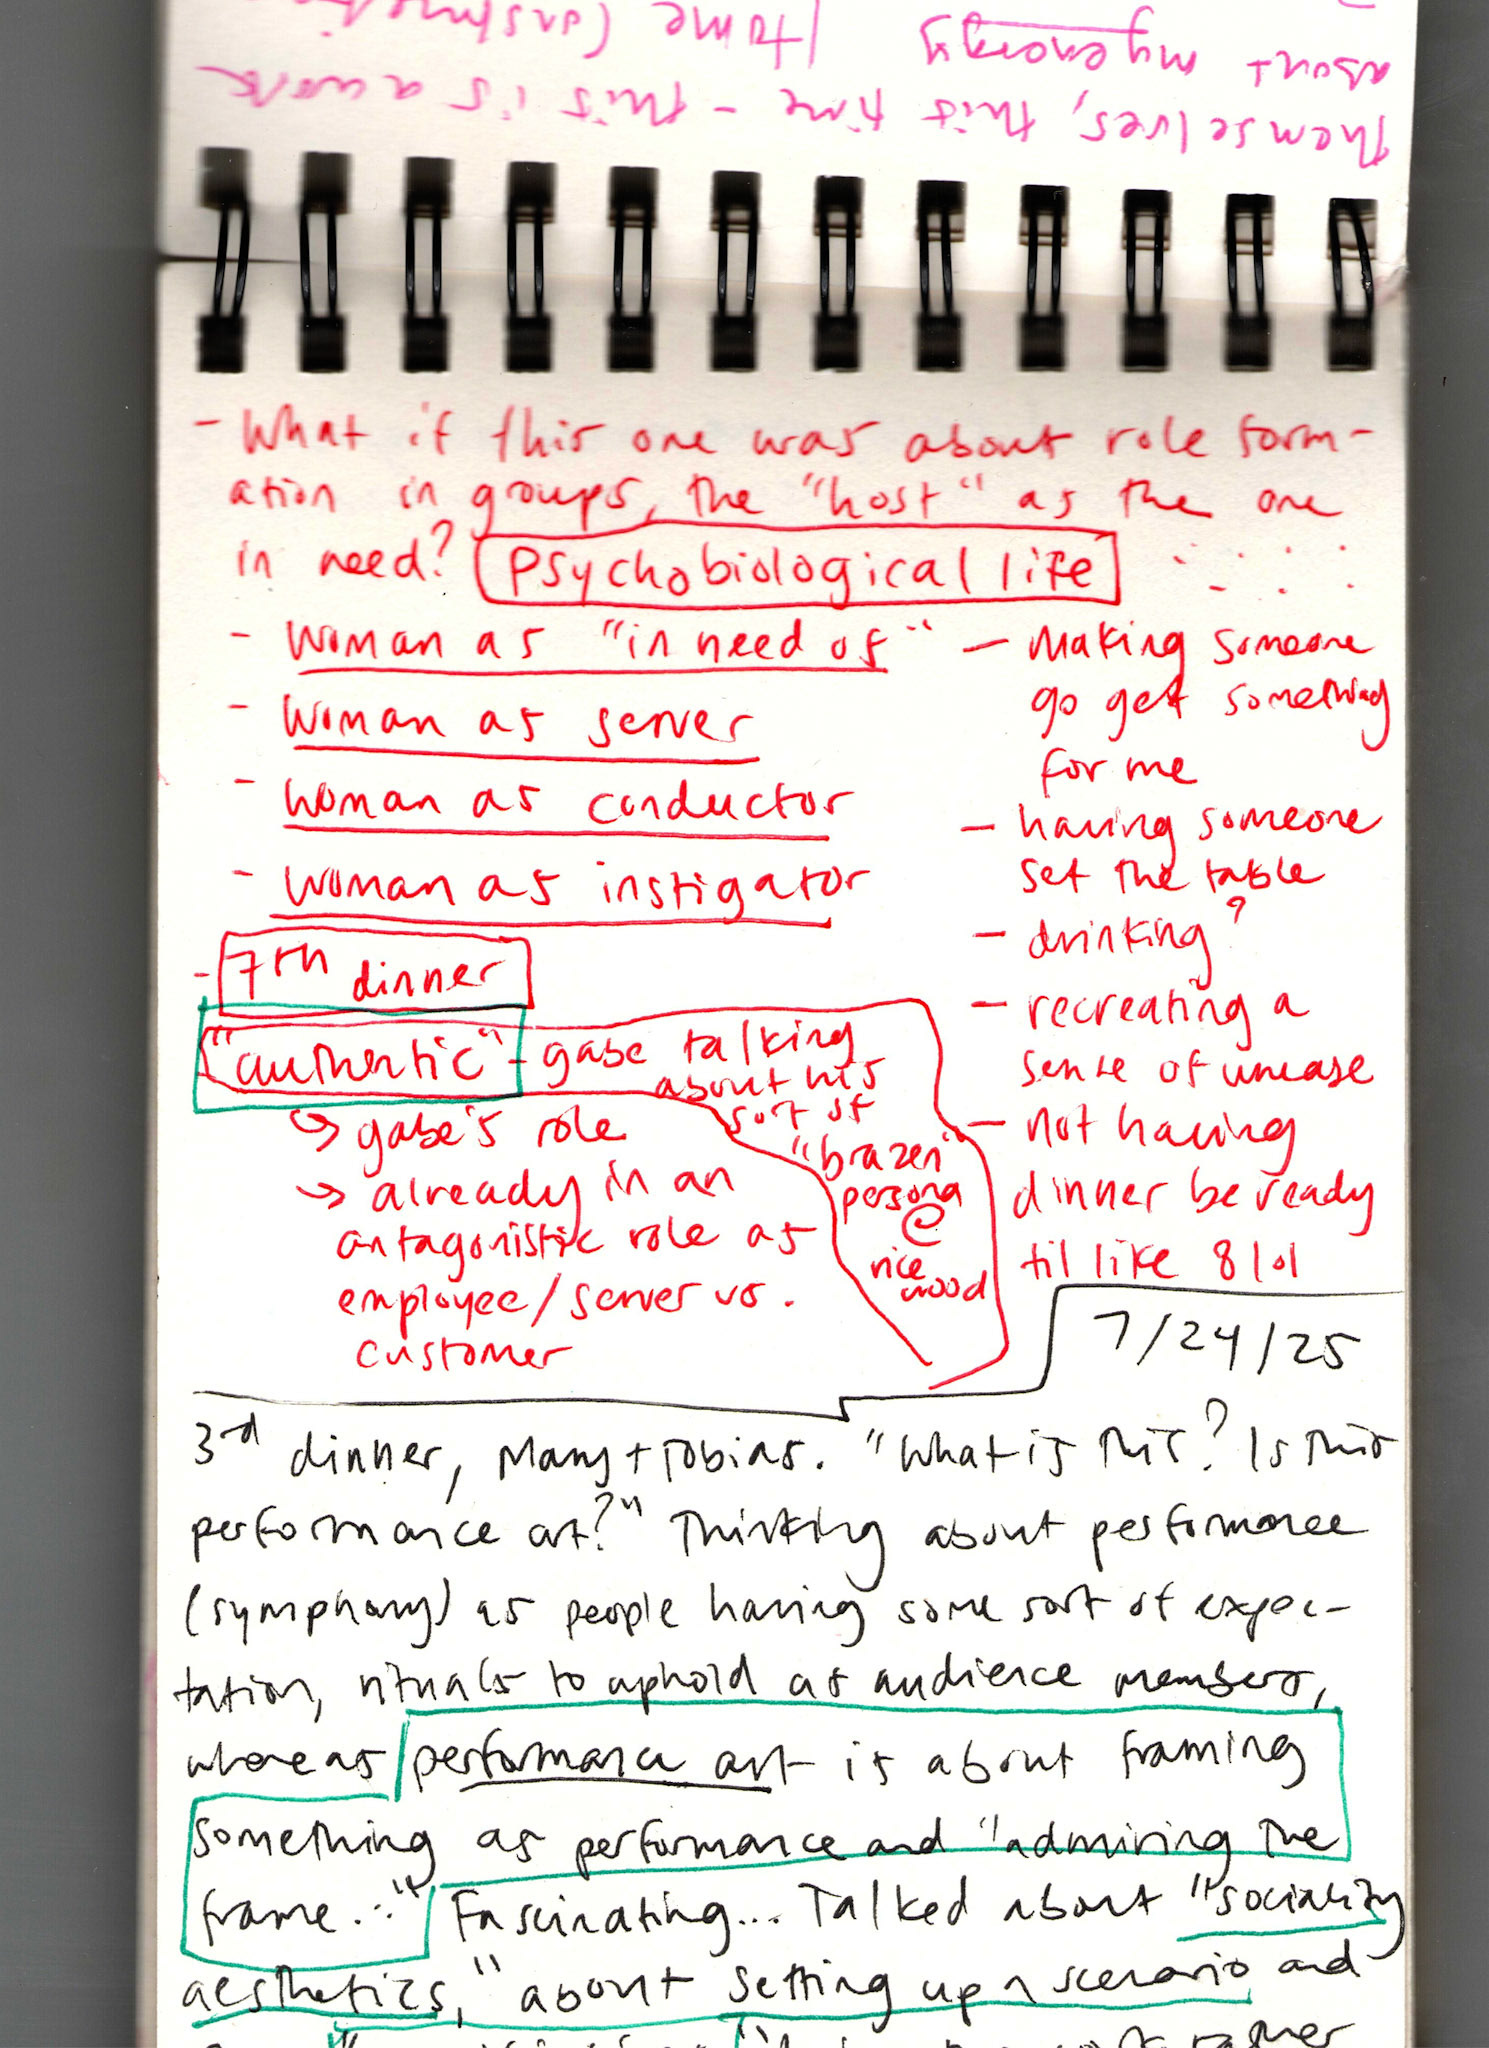 themselves, this time - this is a work
about my energy / time
- What if this one was about role form-
ation in groups, the "host" as the one
in need? psychobiological life
- woman as "in need of"
- woman as server
- woman as conductor
- woman as instigator
- Making someone
go get something
for me
- having someone
set the table
- drinking?
- recreating a
sense of unease
- not having
dinner be ready
til like 8 lol
- 7th dinner
"authentic" - gabe talking
about his
sort of
"brazen"
persona
@
rice
wood
↳ gabe's role
↳ already in an
antagonistic role as
employee/server vs.
customer
7/24/25
3rd dinner, Many + Tobias. "What is this? Is this
performance art?" Thinking about performance
(symphony) as people having some sort of expec-
tation, rituals to uphold as audience members,
whereas performance art is about framing
something as performance and "admiring the
frame..." Fascinating... Talked about "sociality
aesthetics," about setting up a scenario and
rather